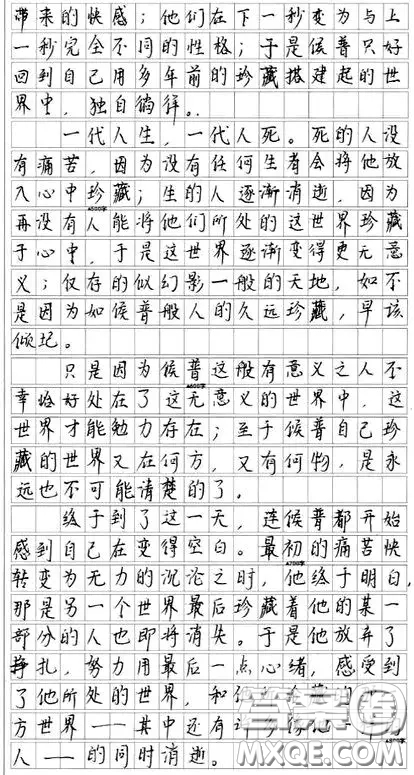 带来的快感；他们在下一秒变为与上
一秒完全不同的性格；于是侯普只好
回到自己用多年前的珍藏搭建起的世
界中，独自徜徉。
一代人生，一代人死。死的人没
有痛苦，因为没有任何生者会将他放
入心中珍藏；生的人逐渐消逝，因为
▲500字
再没有人能将他们所处的这世界珍藏
于心中，于是这世界逐渐变得更无意
义；仅存的似幻影一般的天地，如不
是因为如侯普般人的久远珍藏，早该
倾圮。
只是因为侯普这般有意义之人不
▲600字
幸恰好处在了这无意义的世界中，这
世界才能勉力存在；至于侯普自己珍
藏的世界又在何方，又有何物，是永
远也不可能清楚的了。
终于到了这一天，连侯普都开始
感到自己在变得空白。最初的痛苦快
▲700字
转变为无力的沉沦之时，他终于明白，
那是另一个世界最后珍藏着他的某一
部分的人也即将消失。于是他放弃了
挣扎，努力用最后一点心绪，感受到
了他所处的世界，和
方世界——其中还有
▲800字
人——的同时消逝。
MXQE.COM